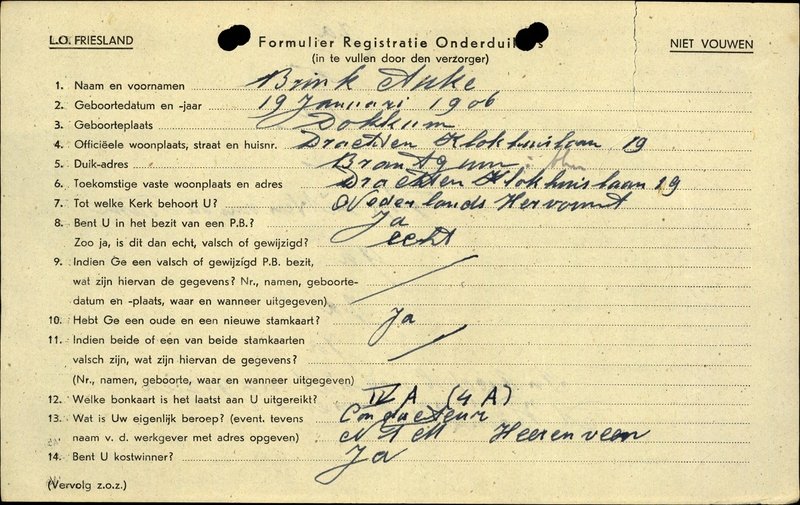 L.O. FRIESLAND
Formulier Registratie Onderduikers
NIET VOUWEN
(in te vullen door den verzorger)
1. Naam en voornamen Brink Auke
2. Geboortedatum en -jaar 19 Januari 1906
3. Geboorteplaats Dokkum
4. Officiëele woonplaats, straat en huisnr. Drachten Klokhuislaan 19
5. Duik-adres Brantgum
6. Toekomstige vaste woonplaats en adres Drachten Klokhuislaan 19
7. Tot welke Kerk behoort U? Nederlands Hervormt
8. Bent U in het bezit van een P.B.? Ja
Zoo ja, is dit dan echt, valsch of gewijzigd? echt
9. Indien Ge een valsch of gewijzigd P.B. bezit,
wat zijn hiervan de gegevens? Nr., namen, geboorte-
datum en -plaats, waar en wanneer uitgegeven)
10. Hebt Ge een oude en een nieuwe stamkaart? Ja
11. Indien beide of een van beide stamkaarten
valsch zijn, wat zijn hiervan de gegevens?
(Nr., namen, geboorte, waar en wanneer uitgegeven)
12. Welke bonkaart is het laatst aan U uitgereikt? IV A (4 A)
13. Wat is Uw eigenlijk beroep? (event. tevens Conducteur
naam v. d. werkgever met adres opgeven) Heerenveen
14. Bent U kostwinner? Ja
(Vervolg z.o.z.)